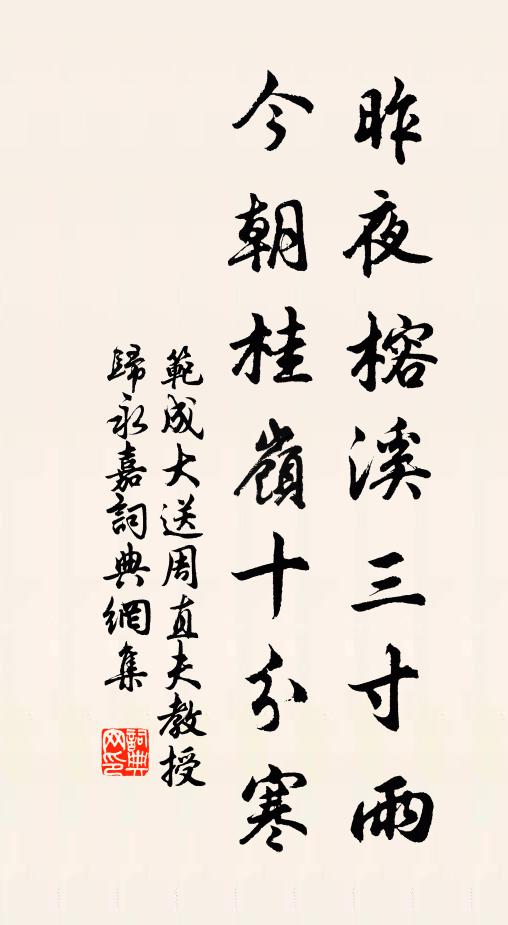 昨夜榕溪三寸雨
今朝桂嶺十分寒
範成大送周直夫教授
歸永嘉詞典網集
詞典网印